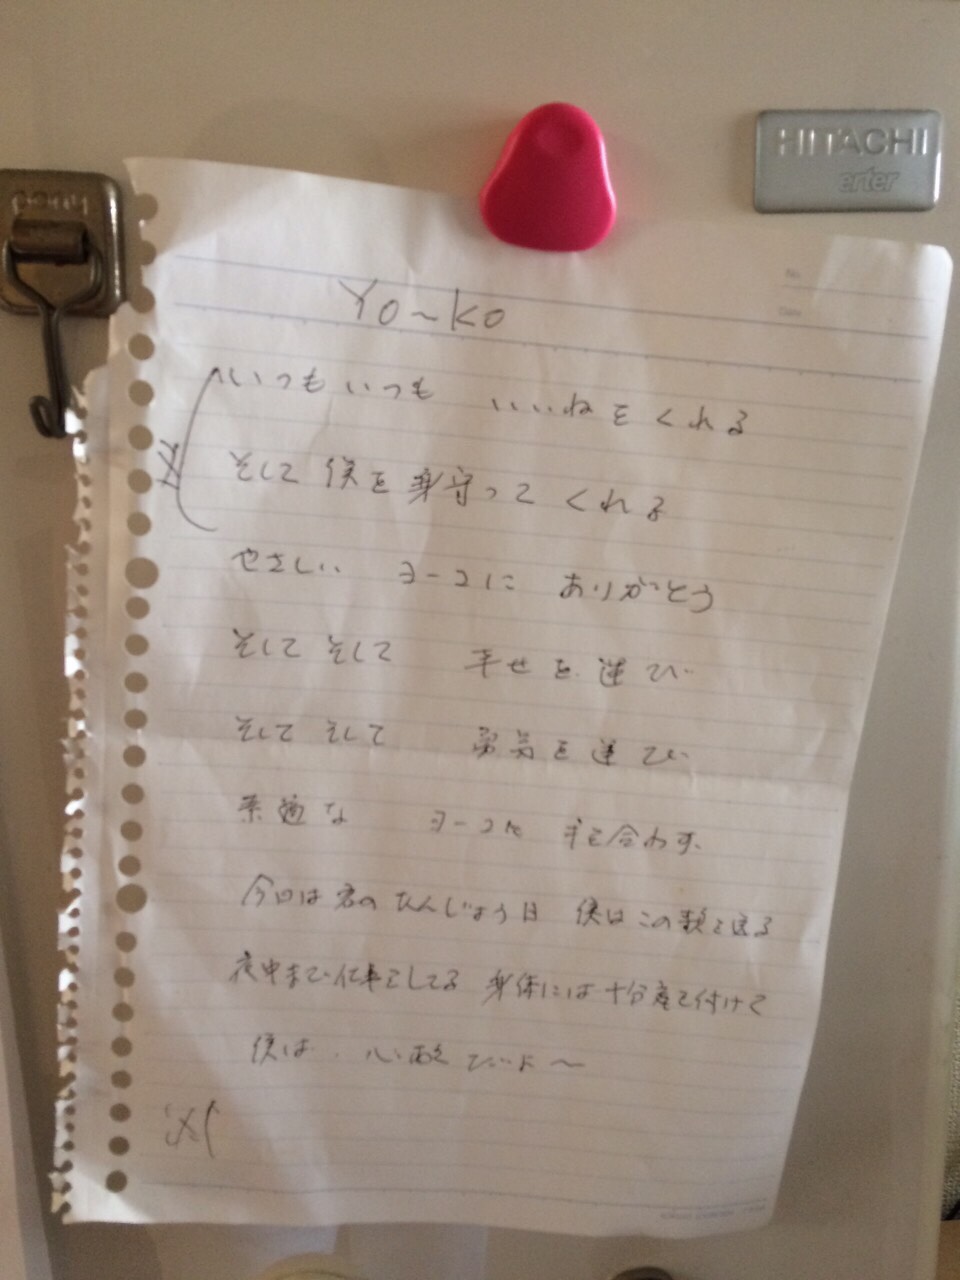 pony
HITACHI
arter
No.
Date
Yo~Ko
いつもいつも いいねをくれる
※ そして僕を身守ってくれる
やさしい ヨーコに ありがとう
そしてそして 幸せを運び
そしてそして 勇気を運び
素適な ヨーコに 手を合わす
今日は君のたんじょう日 僕はこの歌を送る
夜中まで仕事をしてる 身体には十分気を付けて
僕は 心配でいよ～
※(